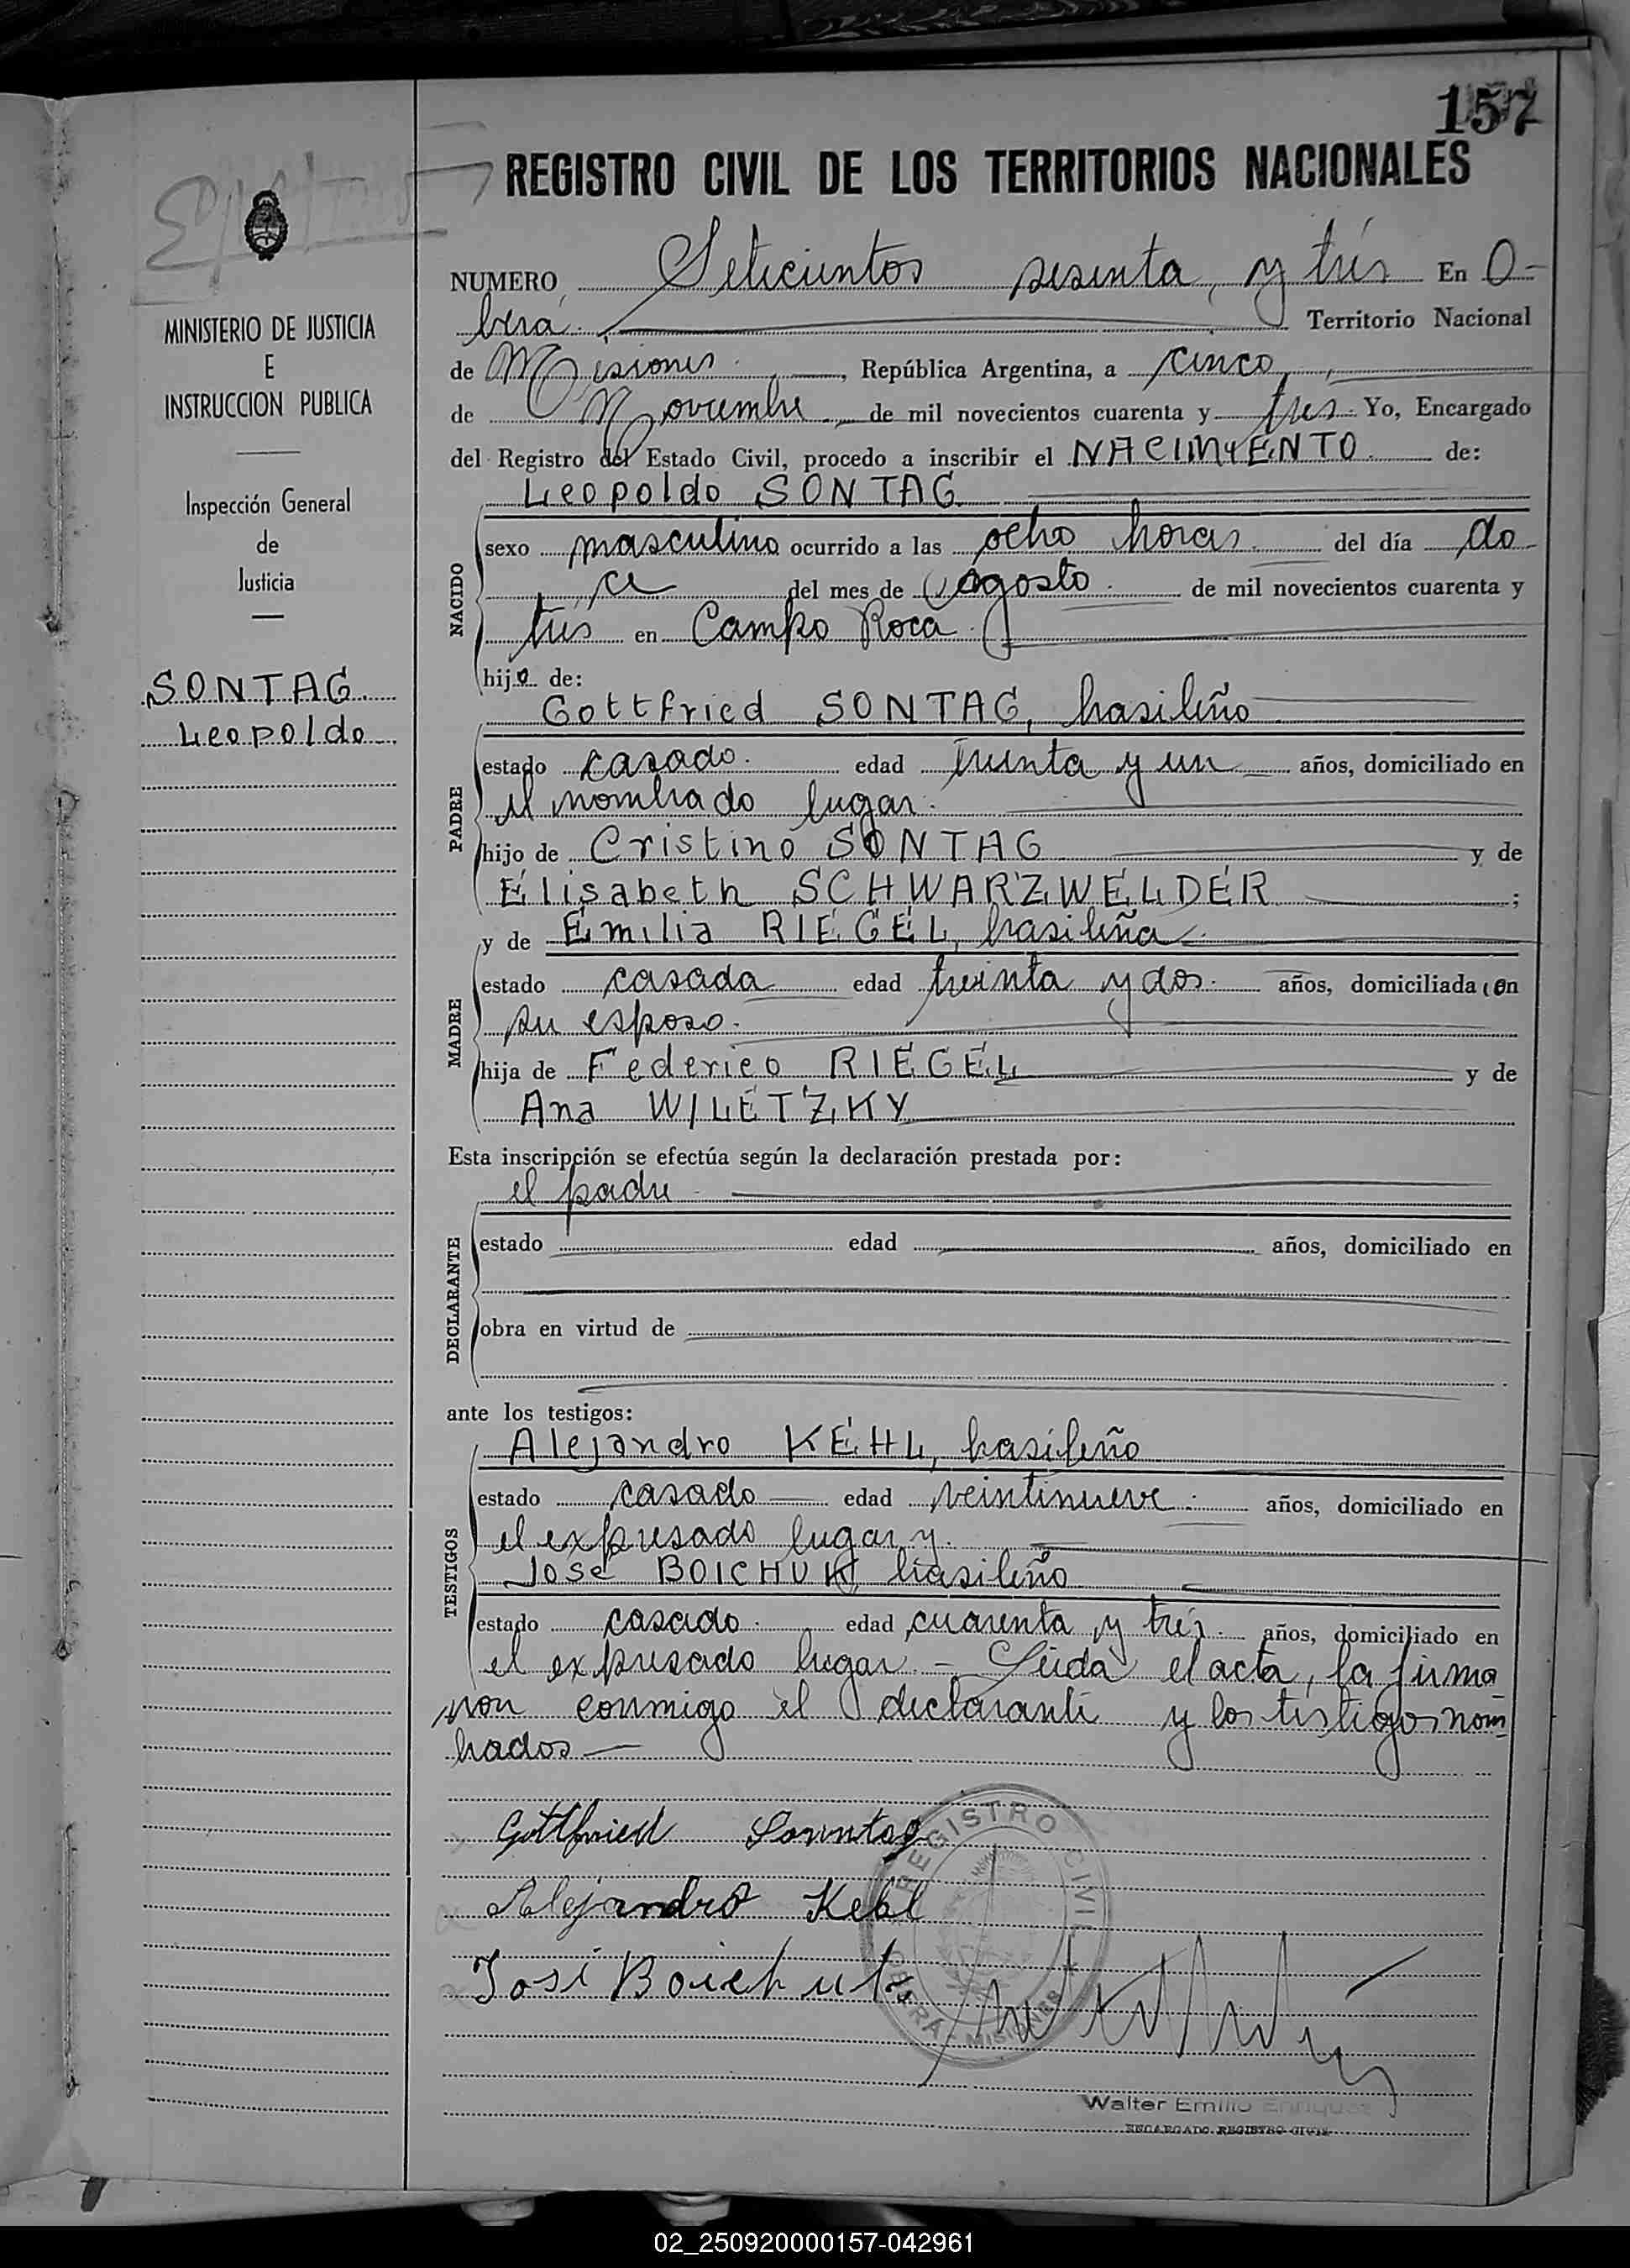 157
REGISTRO CIVIL DE LOS TERRITORIOS NACIONALES
MINISTERIO DE JUSTICIA
E
INSTRUCCION PUBLICA
Inspección General
de
Justicia
SONTAG
Leopoldo
NUMERO Setecientos sesenta y trés En O-
berá. Territorio Nacional
de Misiones, República Argentina, a cinco
de Noviembre de mil novecientos cuarenta y tres Yo, Encargado
del Registro del Estado Civil, procedo a inscribir el NACIMIENTO de:
Leopoldo SONTAG
NACIDO
sexo masculino ocurrido a las ocho horas del día do
ce del mes de Agosto de mil novecientos cuarenta y
trés en Campo Roca
hijo de:
Gottfried SONTAG, brasileño
PADRE
estado casado. edad treinta y un años, domiciliado en
el nombrado lugar.
hijo de Cristino SONTAG y de
Elisabeth SCHWARZWELDER ;
y de Emilia RIEGEL, brasileña
MADRE
estado casada edad treinta y dos. años, domiciliada con
su esposo.
hija de Federico RIEGEL y de
Ana WILETZKY
Esta inscripción se efectúa según la declaración prestada por:
el padre
DECLARANTE
estado edad años, domiciliado en
obra en virtud de
ante los testigos:
Alejandro KEHL, brasileño
TESTIGOS
estado casado edad veintinueve años, domiciliado en
el expresado lugar y
José BOICHUK brasileño
estado casado. edad cuarenta y trés. años, domiciliado en
el expresado lugar. - Leída el acta, la firma
ron conmigo el declarante y los testigos nom
brados
Gottfried Sonntag
Alejandro Kehl
José Boichuk
REGISTRO CIVIL
OBERÁ - MISIONES
Walter Emilio Enriquez
ENCARGADO REGISTRO CIVIL
02_250920000157-042961